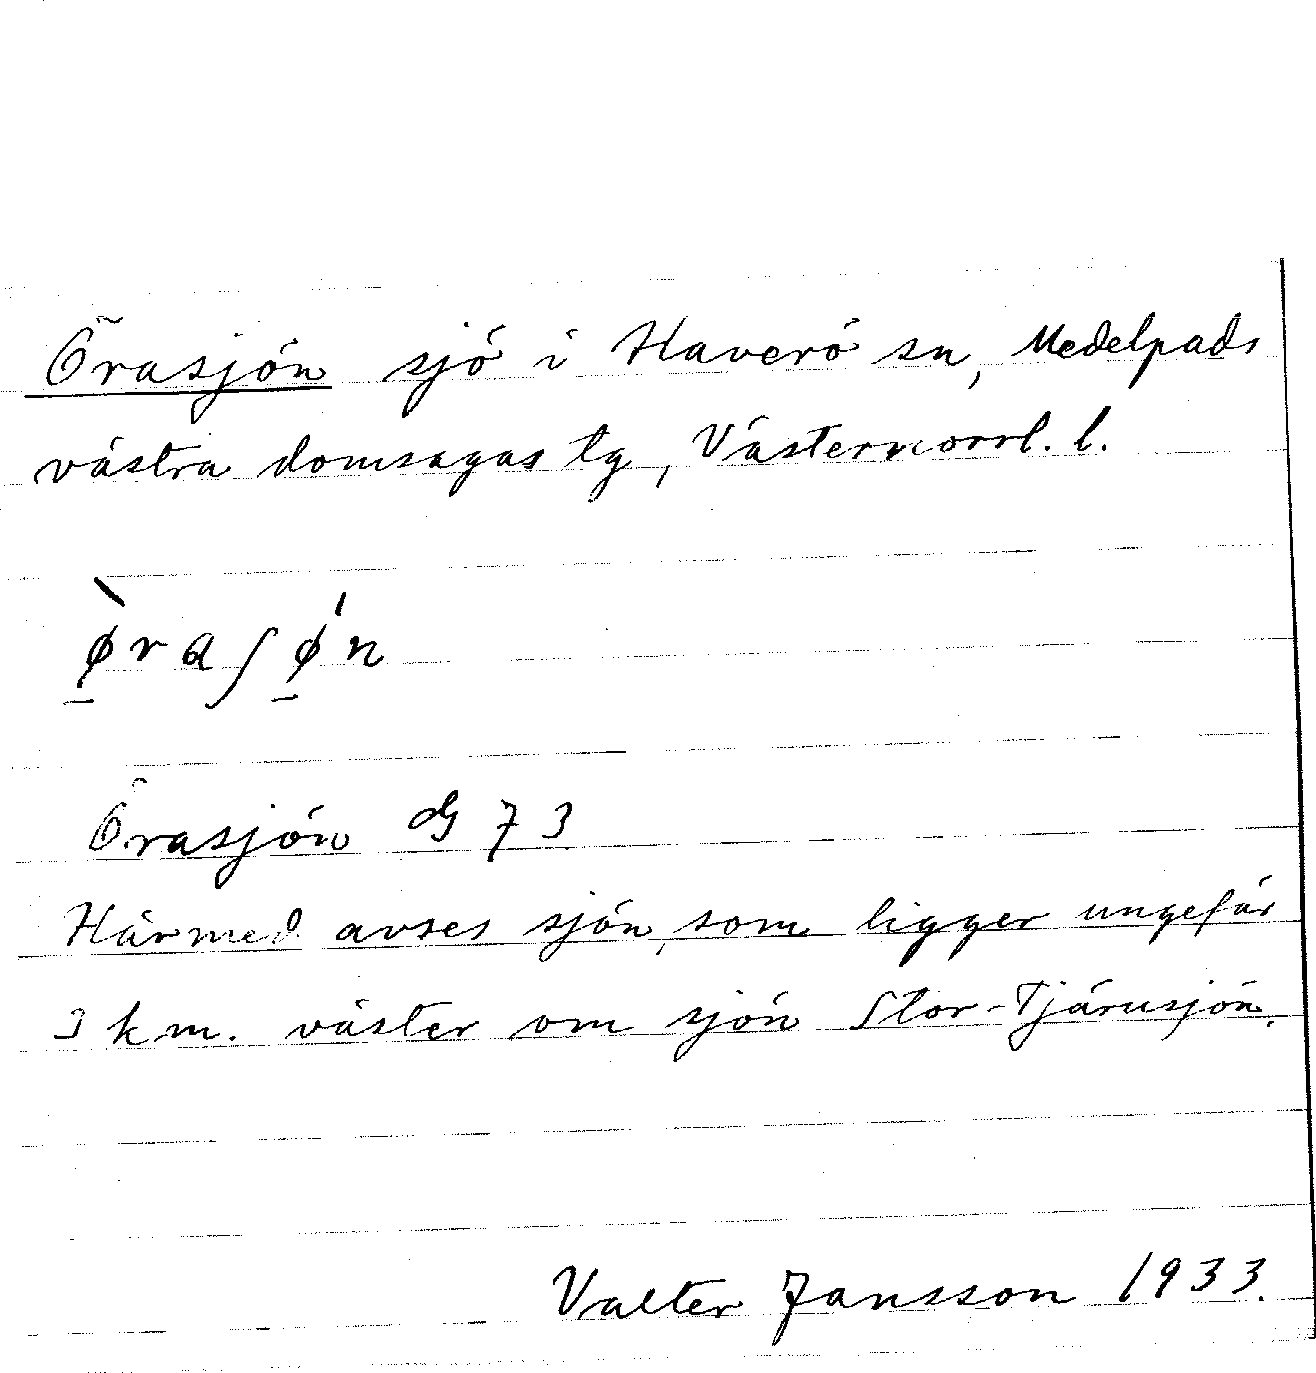 Örasjön sjö i Haverö sn, Medelpads
västra domsagas tg, Västernorrl. l.
ø̱̀raʃǿ̱n
Örasjön dG 73
Härmed avses sjön, som ligger ungefär
3 km. väster om sjön Stor-Tjärusjön.
Valter Jansson 1933.